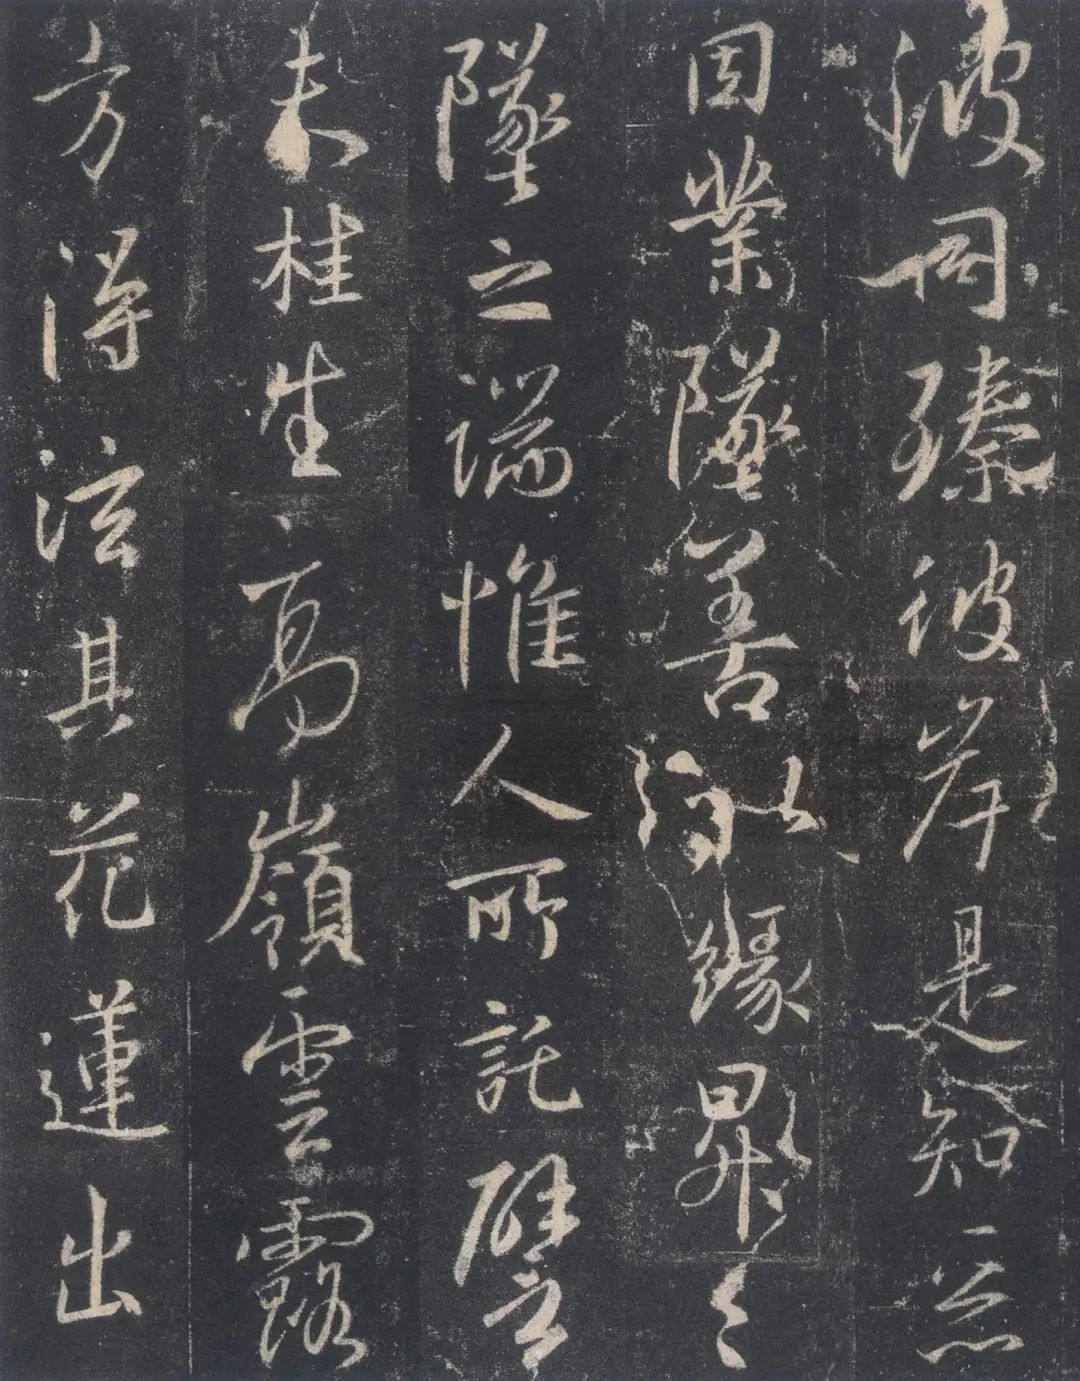 波同臻彼岸是知惡
因業墜善以緣昇〻
墜之端惟人所託譬
夫桂生高嶺雲露
方得泫其花蓮出